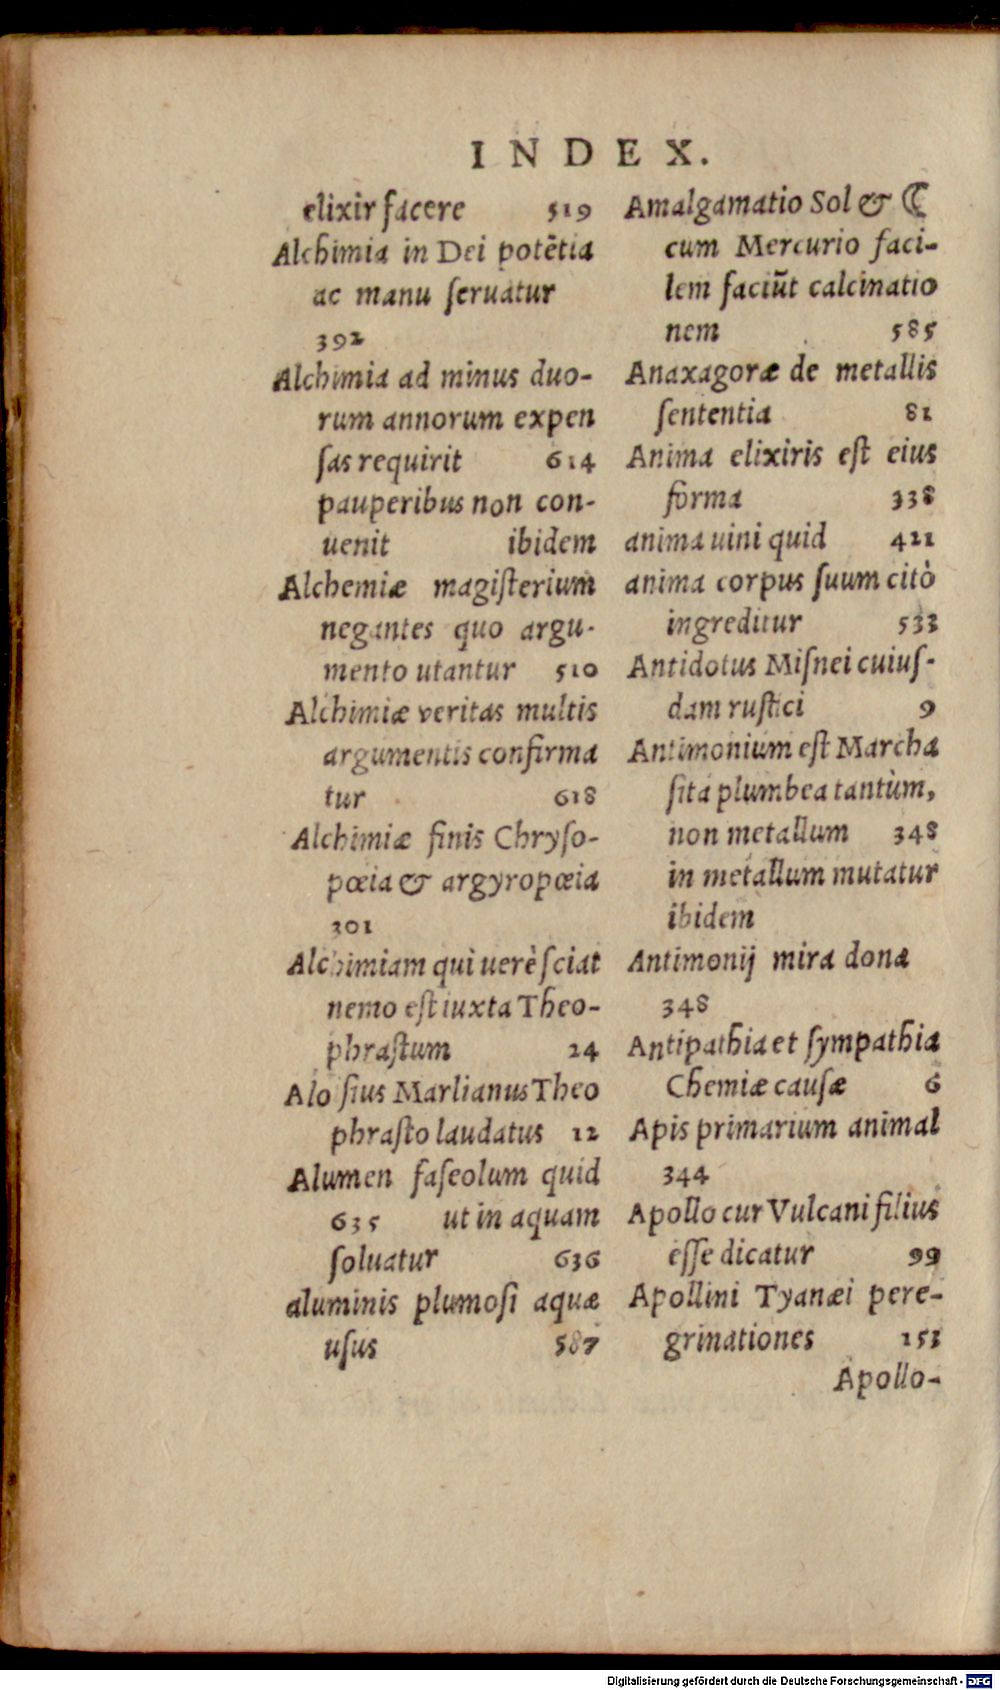 INDEX.
elixir facere 519
Alchimia in Dei potētia
ac manu ſeruatur
392
Alchimia ad minus duo-
rum annorum expen
ſas requirit 614
pauperibus non con-
uenit ibidem
Alchemiæ magiſterium
negantes quo argu-
mento utantur 510
Alchimiæ veritas multis
argumentis confirma
tur 618
Alchimiæ finis Chryſo-
pœia & argyropœia
301
Alchimiam qui uerè ſciat
nemo eſt iuxta Theo-
phraſtum 24
Alo ſius Marlianus Theo
phraſto laudatus 12
Alumen faſeolum quid
635 ut in aquam
ſoluatur 636
aluminis plumoſi aquæ
uſus 587
Amalgamatio Sol & ☾
cum Mercurio faci-
lem faciūt calcinatio
nem 585
Anaxagoræ de metallis
ſententia 81
Anima elixiris eſt eius
forma 338
anima uini quid 421
anima corpus ſuum citò
ingreditur 533
Antidotus Miſnei cuiuſ-
dam ruſtici 9
Antimonium eſt Marcha
ſita plumbea tantùm,
non metallum 348
in metallum mutatur
ibidem
Antimonij mira dona
348
Antipathia et ſympathia
Chemiæ cauſæ 6
Apis primarium animal
344
Apollo cur Vulcani filius
eſſe dicatur 99
Apollini Tyanæi pere-
grinationes 153
Apollo-
Digitalisierung gefördert durch die Deutsche Forschungsgemeinschaft - DFG